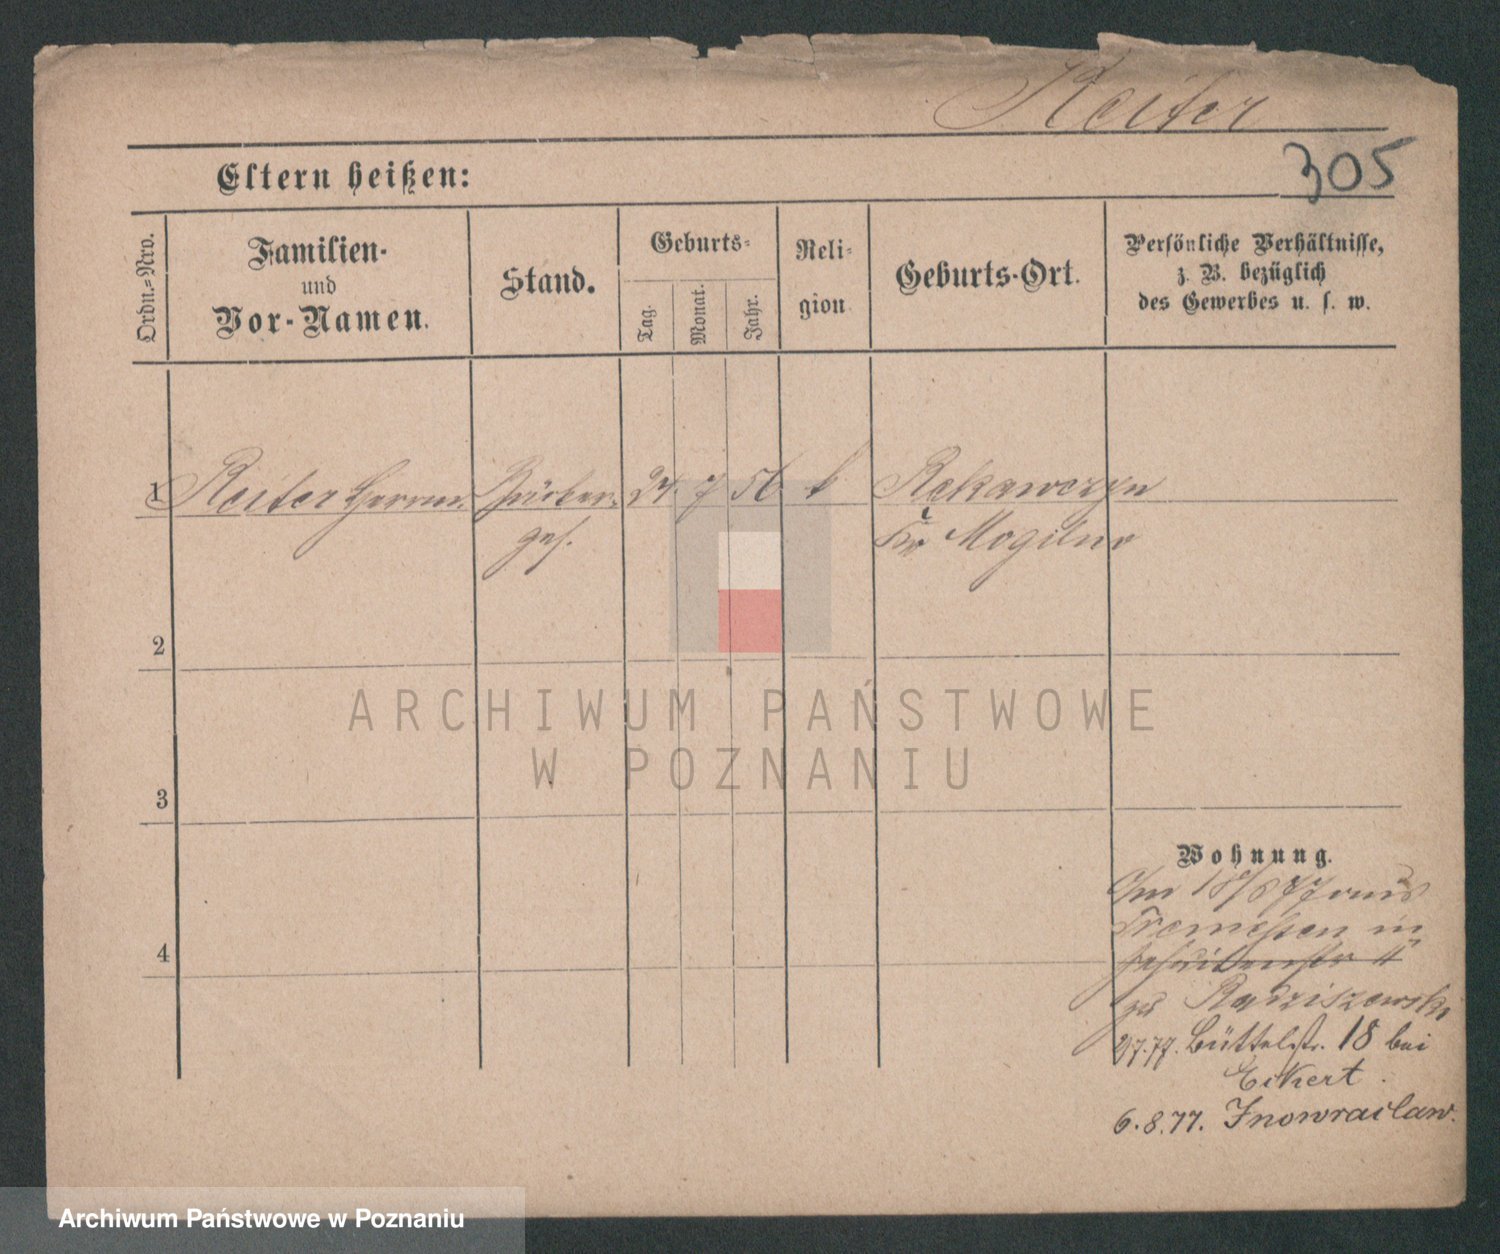 Reiter
305
Eltern heißen:
Ordn.-Nro.
Familien-
und
Vor-Namen.
Stand.
Geburts-
Tag.
Monat.
Jahr.
Reli-
gion
Geburts-Ort.
Persönliche Verhältnisse,
z. B. bezüglich
des Gewerbes u. s. w.
1 Reiter Herrm. 24. 7 56 k Rękawczyn
ges. Kr Mogilno
2
ARCHIWUM PAŃSTWOWE
W POZNANIU
3
4
Wohnung.
Am 18/6 77 aus
Tremessen in
Jesuitenstr 4
zu Radziszewski
2/7.77. Büttelstr. 18 bei
Eckert.
6.8.77. Inowraclaw.
Archiwum Państwowe w Poznaniu